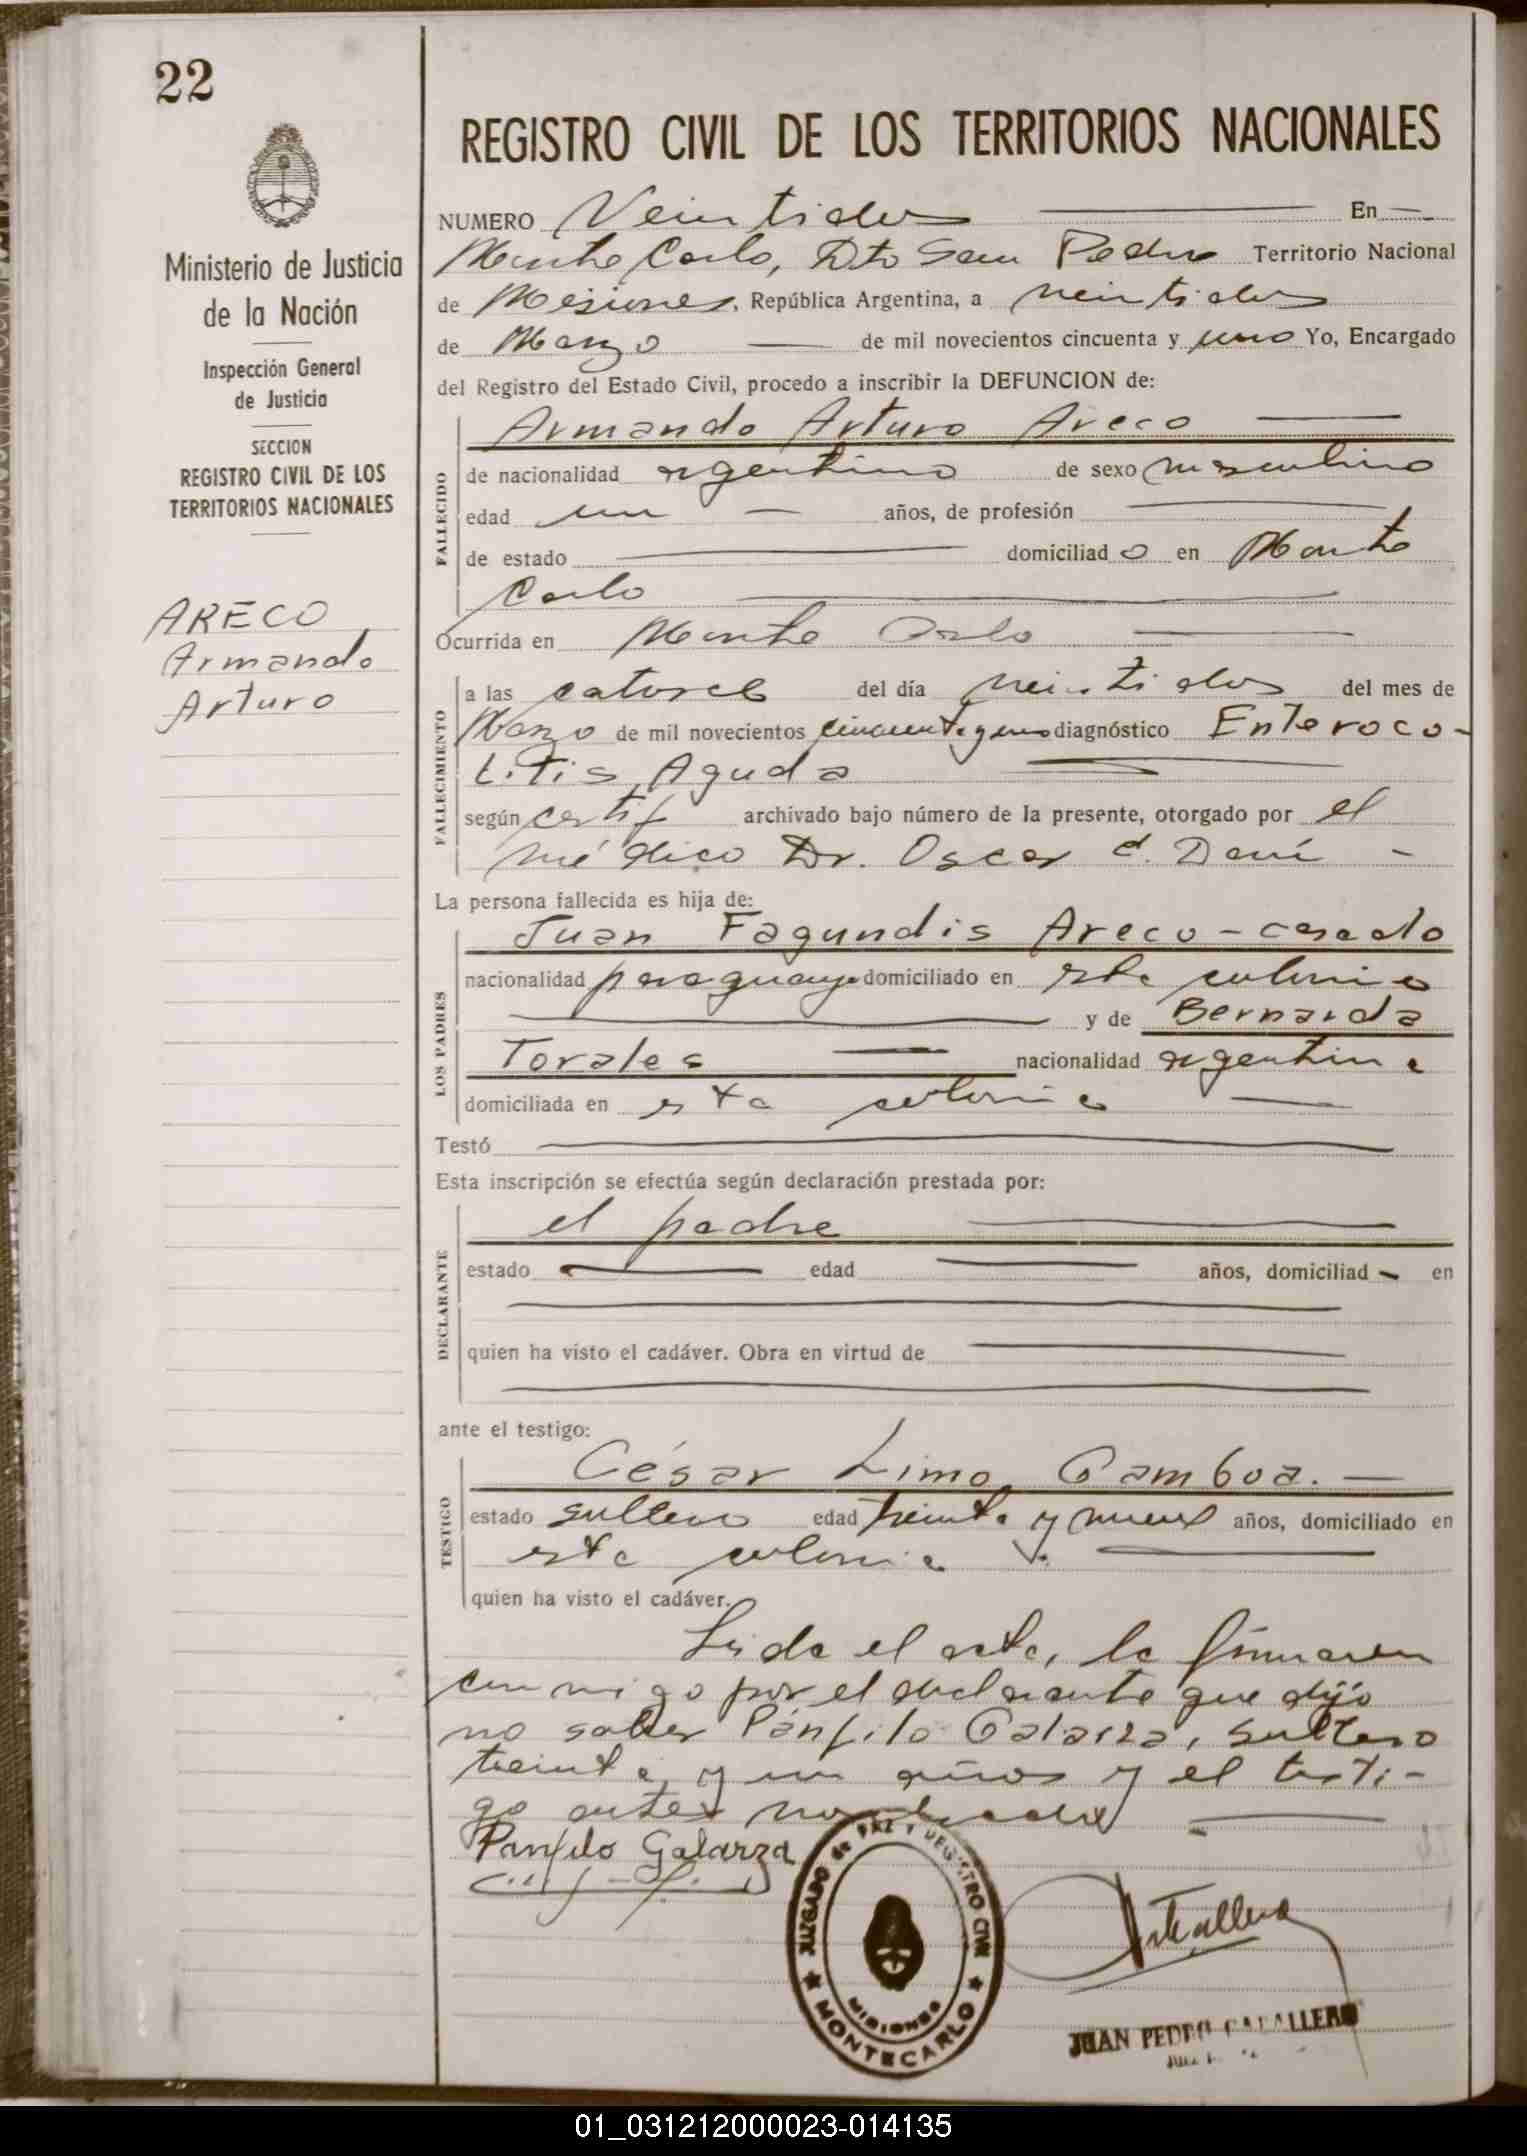 22
Ministerio de Justicia
de la Nación
Inspección General
de Justicia
SECCION
REGISTRO CIVIL DE LOS
TERRITORIOS NACIONALES
ARECO
Armando
Arturo
REGISTRO CIVIL DE LOS TERRITORIOS NACIONALES
NUMERO Veintidos En
Monte Carlo, Dto San Pedro Territorio Nacional
de Misiones, República Argentina, a veintidos
de Marzo de mil novecientos cincuenta y uno Yo, Encargado
del Registro del Estado Civil, procedo a inscribir la DEFUNCION de:
Armando Arturo Areco
FALLECIDO
de nacionalidad argentino de sexo masculino
edad un años, de profesión
de estado domiciliado en Monte
Carlo
Ocurrida en Monte Carlo
FALLECIMIENTO
a las catorce del día veintidos del mes de
Marzo de mil novecientos cincuenta y uno diagnóstico Enteroco-
litis Aguda
según certif archivado bajo número de la presente, otorgado por el
médico Dr. Oscar
La persona fallecida es hija de:
LOS PADRES
Juan Fagundis Areco - casado
nacionalidad paraguayo domiciliado en esta colonia
y de Bernarda
Torales nacionalidad argentina
domiciliada en esta colonia
Testó
Esta inscripción se efectúa según declaración prestada por:
DECLARANTE
el padre
estado edad años, domiciliad en
quien ha visto el cadáver. Obra en virtud de
ante el testigo:
TESTIGO
César Limo Gamboa.
estado soltero edad treinta y nueve años, domiciliado en
esta colonia
quien ha visto el cadáver.
Leida el acta, la firmaron
conmigo por el declarante que dijo
no saber Pánfilo Galarza, soltero
treinta y un años y el testi-
go antes nombrado
Panfilo Galarza
JUZGADO de PAZ Y REGISTRO CIVIL
MISIONES
MONTECARLO
JUAN PEDRO CABALLERO
01_031212000023-014135